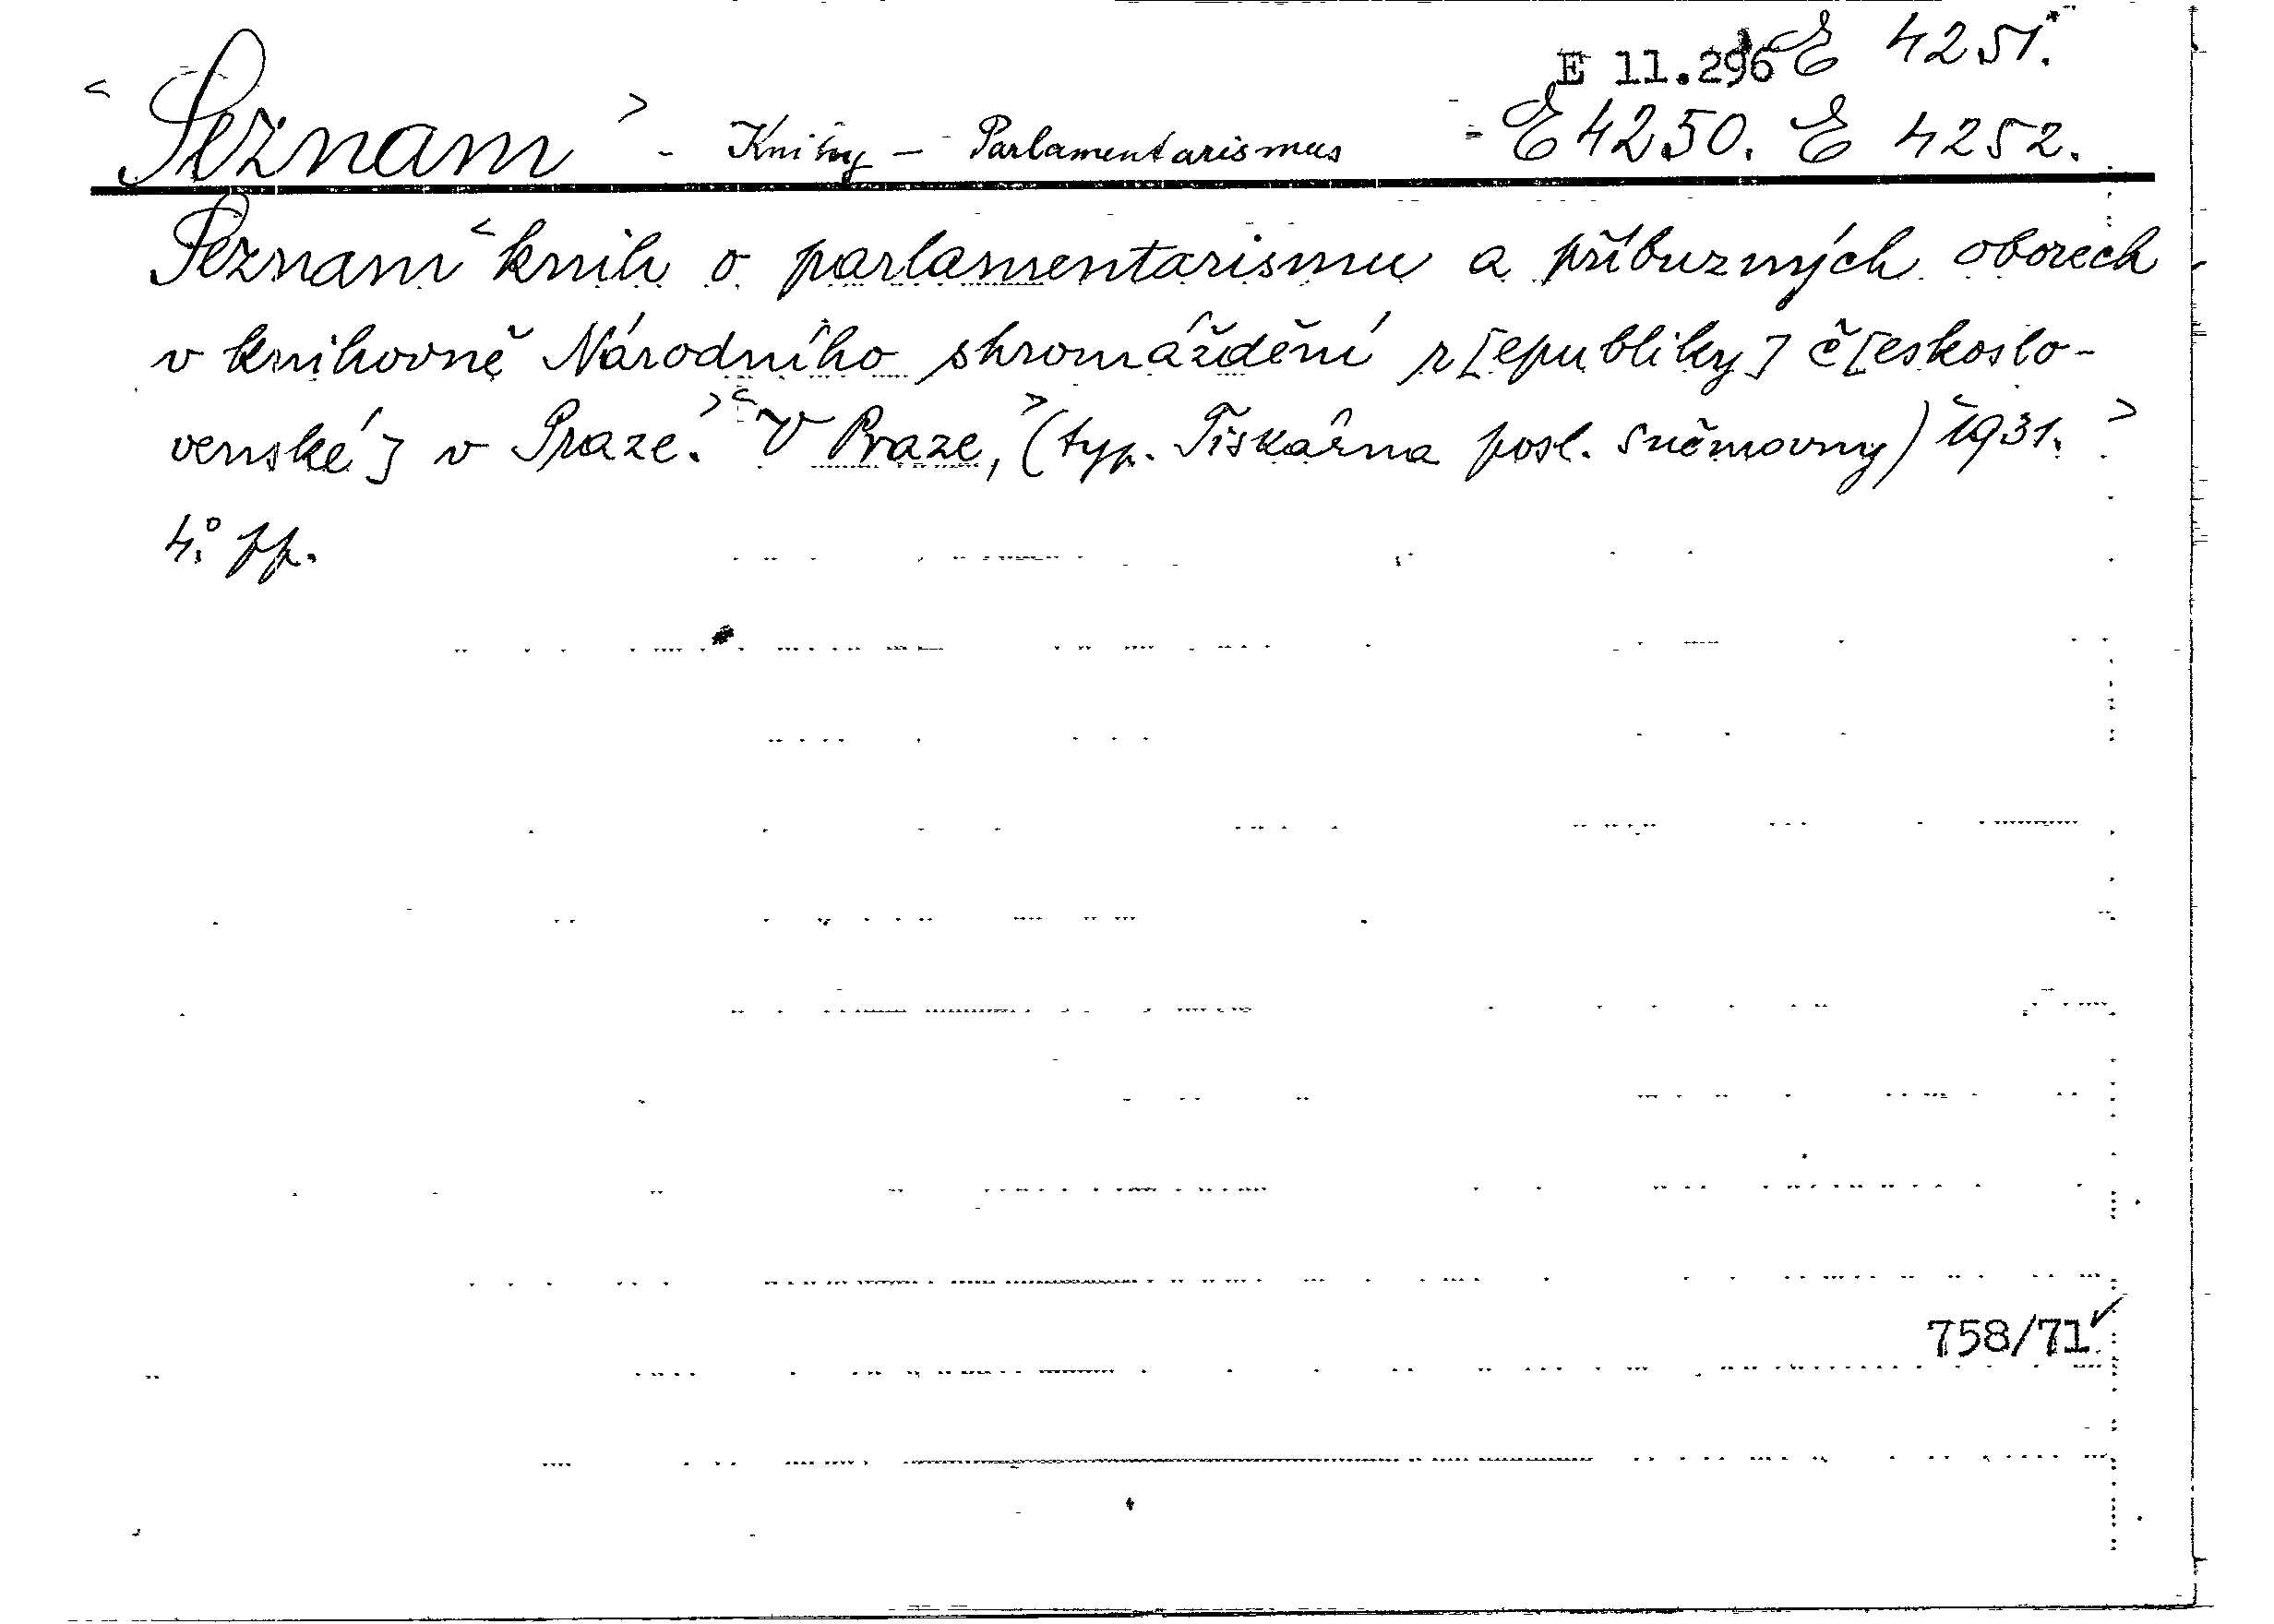 E 11.296 E 4251.
<Seznam> - Knihy - Parlamentarismus - E 4250. E 4252.
Seznam <knih o parlamentarismu a příbuzných oborech
v knihovně Národního shromáždění r[epubliky] č[eskoslo-
venské] v Praze.> <V Praze,> (typ. Tiskárna posl. sněmovny) <1931.>
4.° pp.
758/71